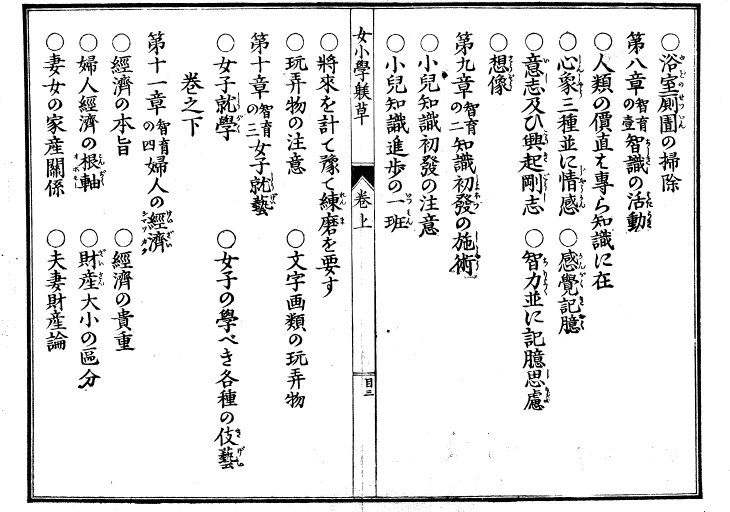 ○浴室厠圊の掃除
第八章 智育の壹 智識の活動
○人類の價直は專ら知識に在
○心象三種並に情感 ○感覺記臆
○意志及ひ興起剛志 ○智力並に記臆思慮
○想像
第九章 智育の二 知識初發の施術
○小兒知識初發の注意
○小兒知識進歩の一班
女小學躾草 卷上 目三
○將來を計て豫て練磨を要す
○玩弄物の注意 ○文字画類の玩弄物
第十章 智育の三 女子就藝
○女子就學 ○女子の學べき各種の伎藝
卷之下
第十一章 智育の四 婦人の經濟
○經濟の本旨 ○經濟の貴重
○婦人經濟の根軸 ○財産大小の區分
○妻女の家産關係 ○夫妻財産論